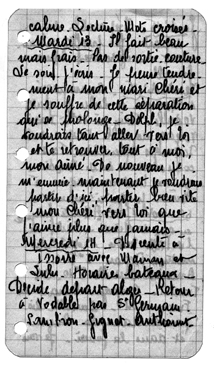 calme. Lecture Mots croisés
Mardi 13. Il fait beau
mais frais. Pas de sortie, couture
Le soir j'écris. Je pense tendre-
ment à mon mari chéri et
je souffre de cette séparation
qui se prolonge. Je
voudrais tant aller vers toi
et te retrouver tout à moi,
mon aimé. De nouveau je
m'ennuie maintenant je voudrais
partir d'ici, partir bien vite
mon Chéri vers toi que
j'aime plus que jamais.
Mercredi 14 - à
Issoire avec Maman et
Horaire bateaux
Décide départ alger - Retour
à Vodable par St Germain
Lembron. Gignat. Anthama